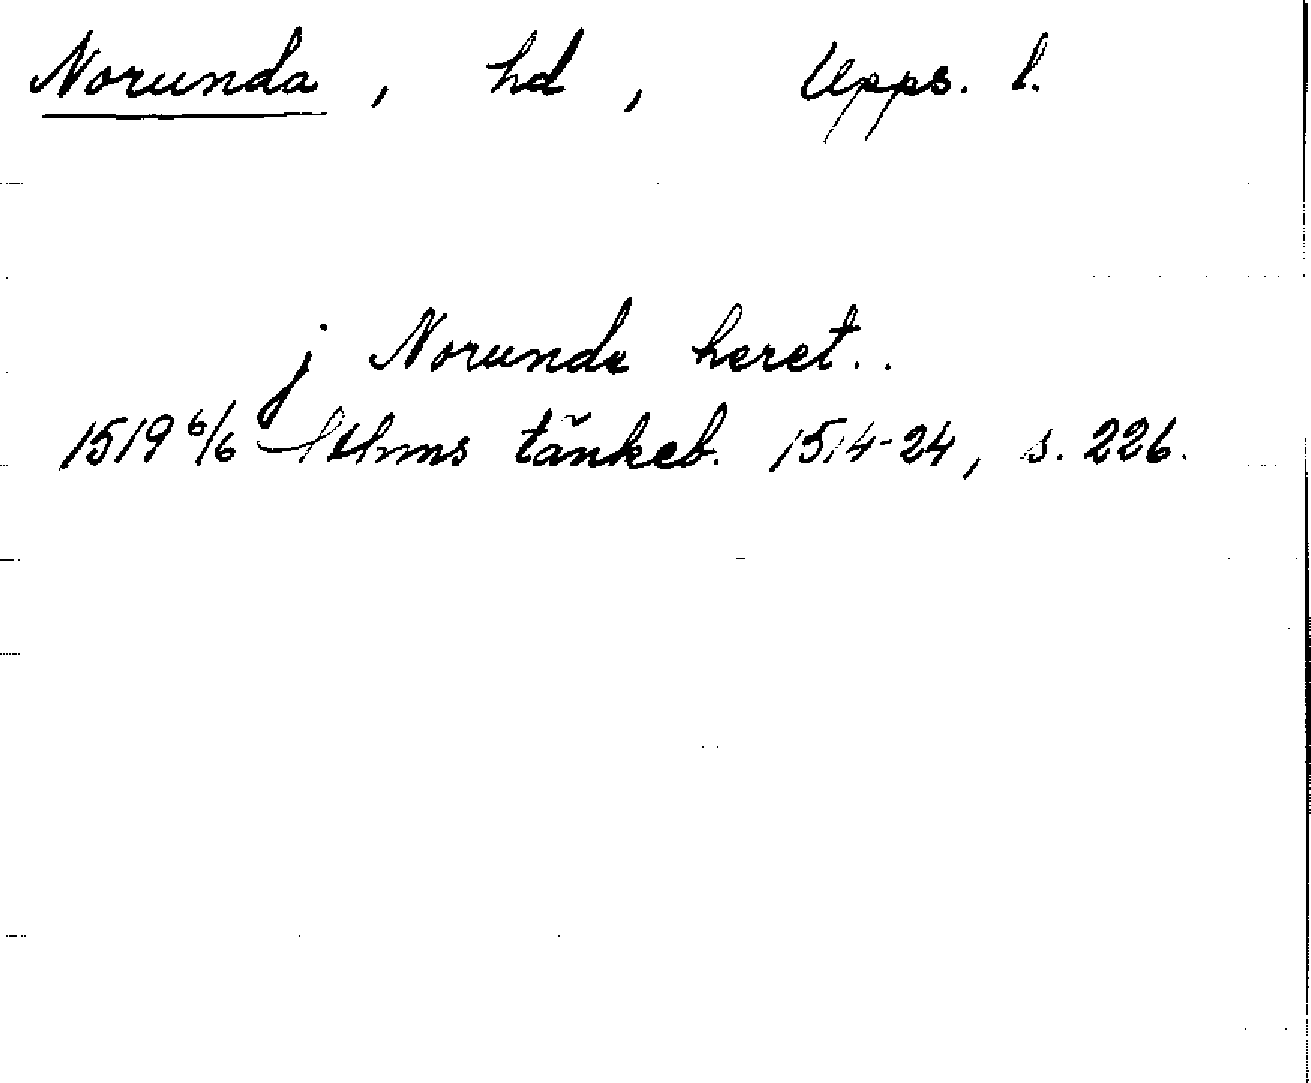 Norunda, hd, Upps. l.
j Norunda heret..
1519 6/6 Sthms tänkeb. 1514-24, s. 226.